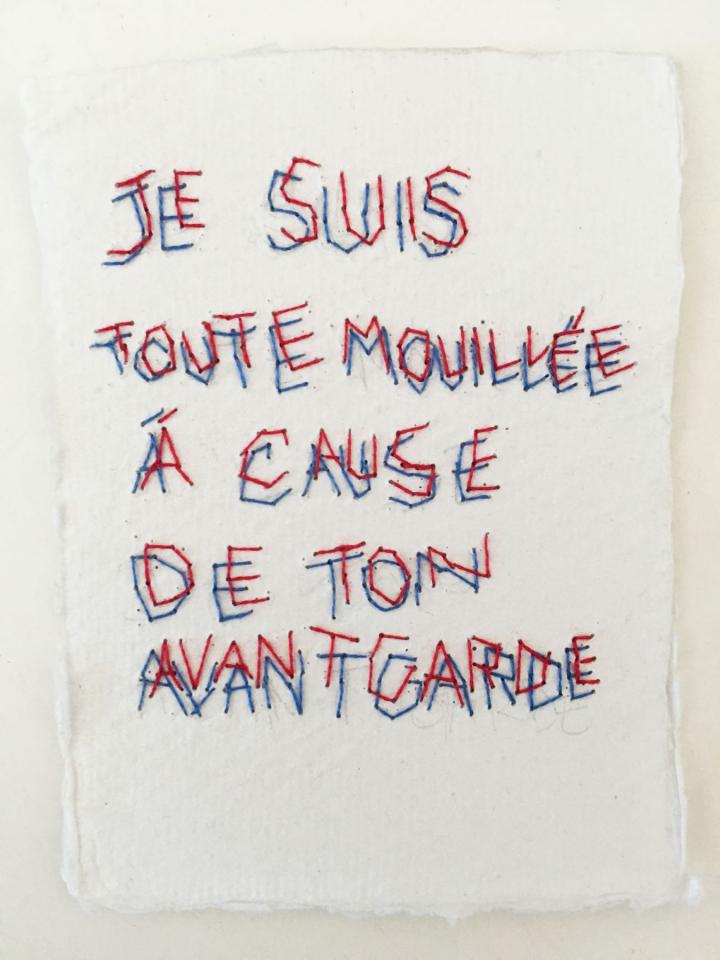 JE SUIS
TOUTE MOUILLÉE
Á CAUSE
DE TON
AVANTGARDE